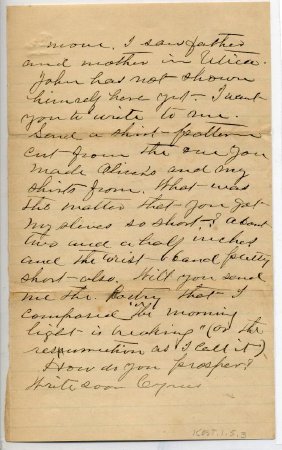 move. I saw father
and mother in Utica.
John has not shown
himself here yet. I want
you to write to me.
Send a shirt pattern
cut from the one you
made and my
shirts from. What was
the matter that you got
my slives so short? about
two and a half inches
and the wrist band pretty
short also. Will you send
me the Poetry that I
composed "The morning
light is breaking" (or the
resurrection as I call it)
How do you prosper?
Write soon Cyrus
KOST.1.5.3